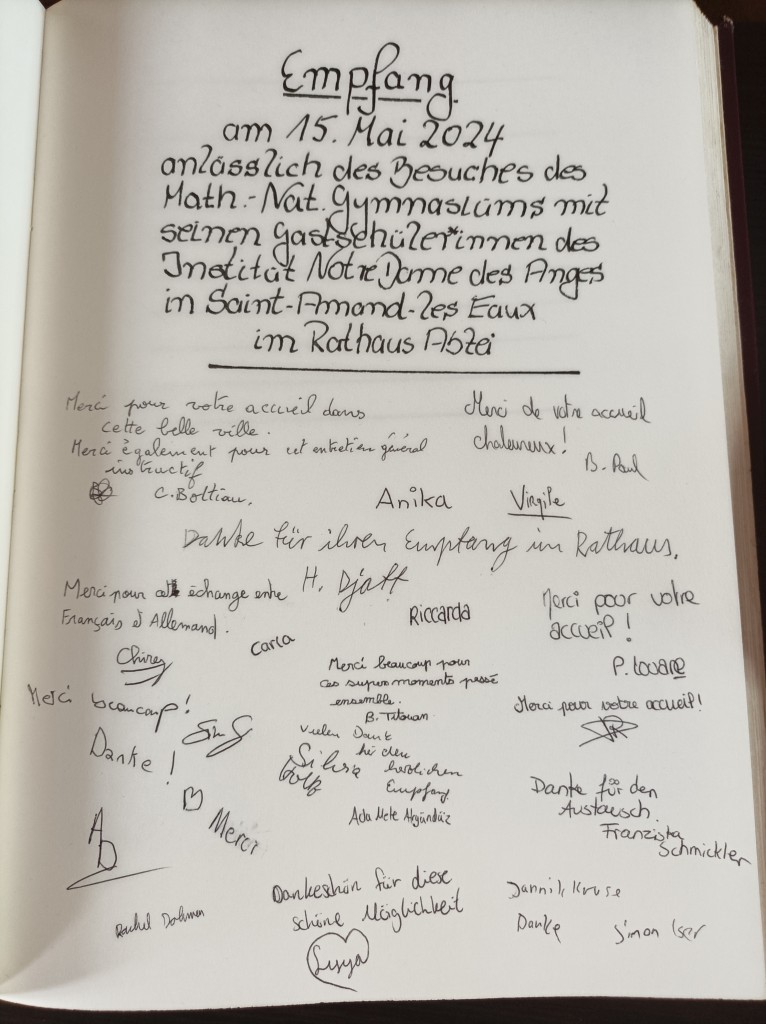 Empfang
am 15. Mai 2024
anlässlich des Besuches des
Math.-Nat. Gymnasiums mit
seinen Gastschüler*innen des
Institut Notre Dame des Anges
in Saint-Amand-les Eaux
im Rathaus Abtei
Merci pour votre accueil dans
cette belle ville.
Merci également pour cet entretien général
instructif
C. Bottiau.
Merci de votre accueil
chaleureux!
B. Paul
Anika
Virgile
Danke für ihren Empfang im Rathaus.
H. Djaff
Merci pour échange entre
Français et Allemand.
Carla
Riccarda
Merci pour votre
accueil!
P. Louane
Merci beaucoup pour
ces supers moments passé
ensemble.
B. Titouan
Merci pour votre accueil!
Merci beaucoup!
Danke!
Vielen Dank
herzlichen
Empfang
Silvia
Ada Mete Akgündüz
Danke für den
Austausch.
Franziska
Schmickler
B
Merci
AD
Rachel Dahmen
Dankeschön für diese
schöne Möglichkeit
Jannik Kruse
Danke
Simon Iser